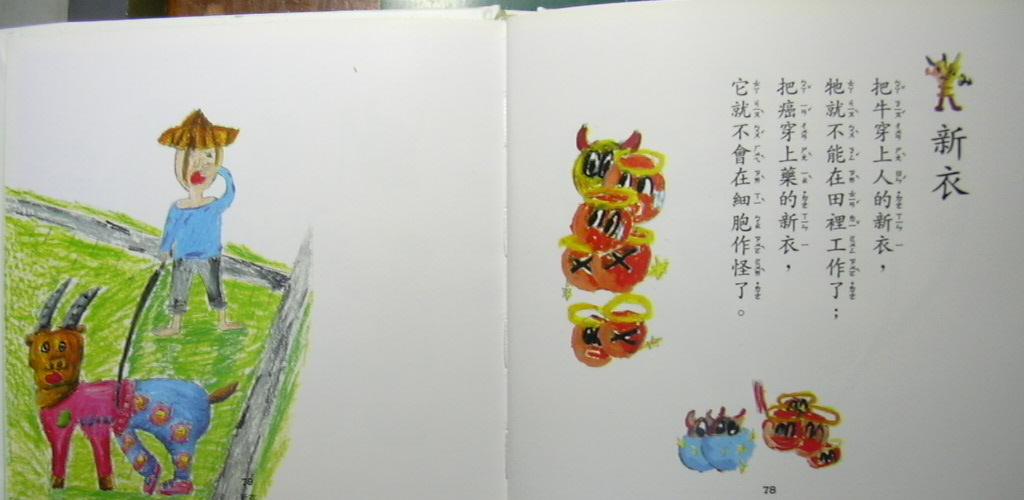 新衣
把牛穿上人的新衣，
牠就不能在田裡工作了；
把癌穿上藥的新衣，
它就不會在細胞作怪了。
78